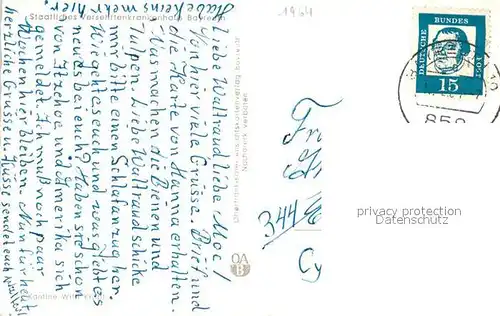 1964
Staatliches Versehrtenkrankenhaus Bayreuth
habe keins mehr hier.
Liebe Waltraud liebe Moe!
Von hier viele Grüsse. Brief und
die Karte von Hanna erhalten.
Was machen die Bienen und
Tulpen. Liebe Waltraud schicke
mir bitte einen Schlafanzug her.
Wie geht es euch und was gibt es
neues bei euch? Haben sie schon
von Itzehoe und Amerika sich
gemeldet. Ich muß noch paar
Wochen hier bleiben. Nun für heut
herzliche Grüsse u. Küsse sendet euch
Nachdruck verboten
Kantine
DEUTSCHE BUNDESPOST
15
privacy protection
Datenschutz
344
Cy